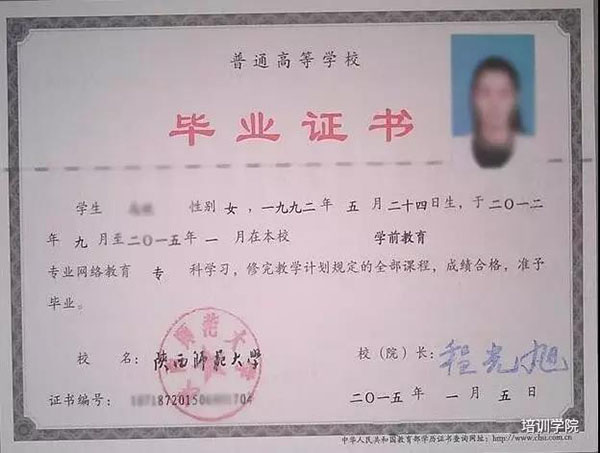 普通高等学校
毕业证书
学生 性别 女，一九九二年 五 月二十四日生，于二〇一二
年 九 月至二〇一五年 一 月在本校 学前教育
专业网络教育 专 科学习，修完教学计划规定的全部课程，成绩合格，准予
毕业。
校 名：陕西师范大学 校（院）长：程光旭
证书编号： 704 二〇一五年 一 月 五 日
中华人民共和国教育部学历证书查询网址：http://www.chsi.com.cn
培训学院